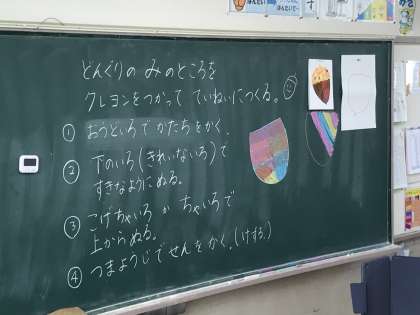 どんぐりの みのところを
クレヨンをつかって ていねいにつくる。
① おうどいろで かたちを かく。
② 下のいろ(きれいないろ)で
すきなようにぬる。
③ こげちゃいろ か ちゃいろで
上からぬる。
④ つまようじで せんを かく。(けずる)